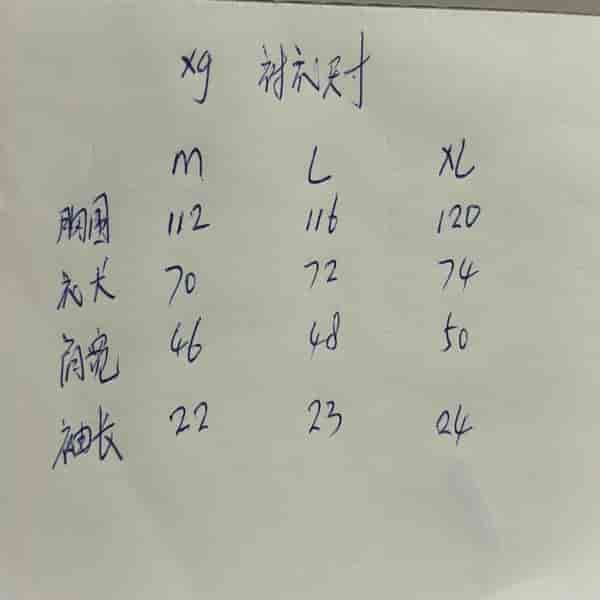 xg 衬衣尺寸
M L XL
胸围 112 116 120
衣长 70 72 74
肩宽 46 48 50
袖长 22 23 24